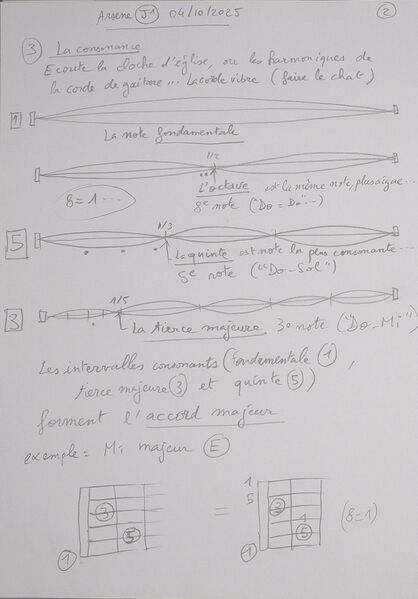 Arsene J1 04/10/2025
2
3 La consonance
Ecoute la cloche d'église, ou les harmoniques de
la corde de guitare... La corde vibre (faire le chat)
1
La note fondamentale
1/2
L'octave est la même note, plus aigüe...
8=1 ....
8e note ("Do = Do"...)
1/3
5
La quinte est note la plus consonante...
5e note ("Do-Sol")
1/5
3
La tierce majeure 3e note ("Do-Mi")
Les intervalles consonants (fondamentale 1,
tierce majeure 3 et quinte 5)
forment l'accord majeur
exemple = Mi majeur E
1
5
3 = 3 1 (8=1)
5 5
1 1